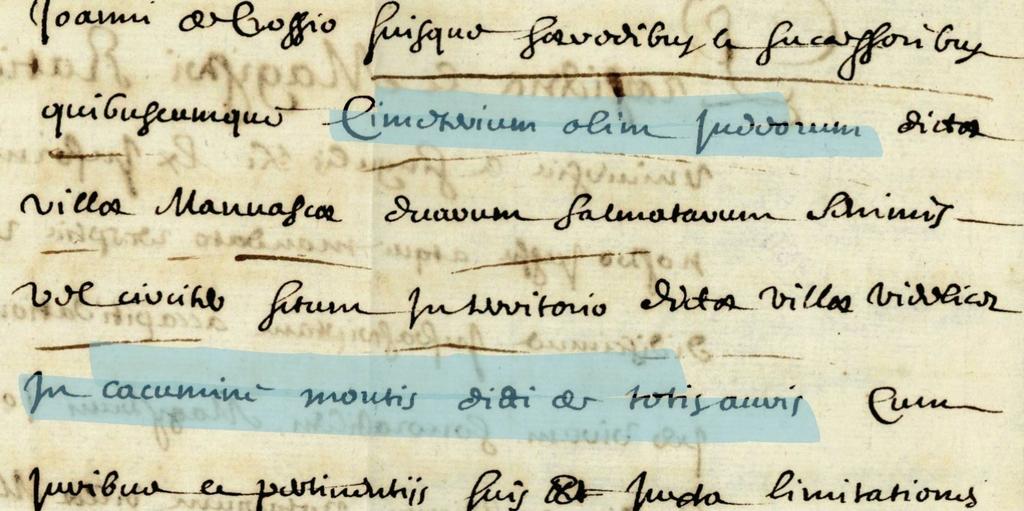 Joanni de Crossio suisque heredibus & successoribus
quibuscumque Cimeterium olim judeorum dictæ
villæ Manuascæ duarum salmatarum seminis
vel circiter situm in territorio dictæ villæ videlicet
in cacumine montis dicti de totisauris Cum
juribus et pertinentijs suis et juxta limitationes